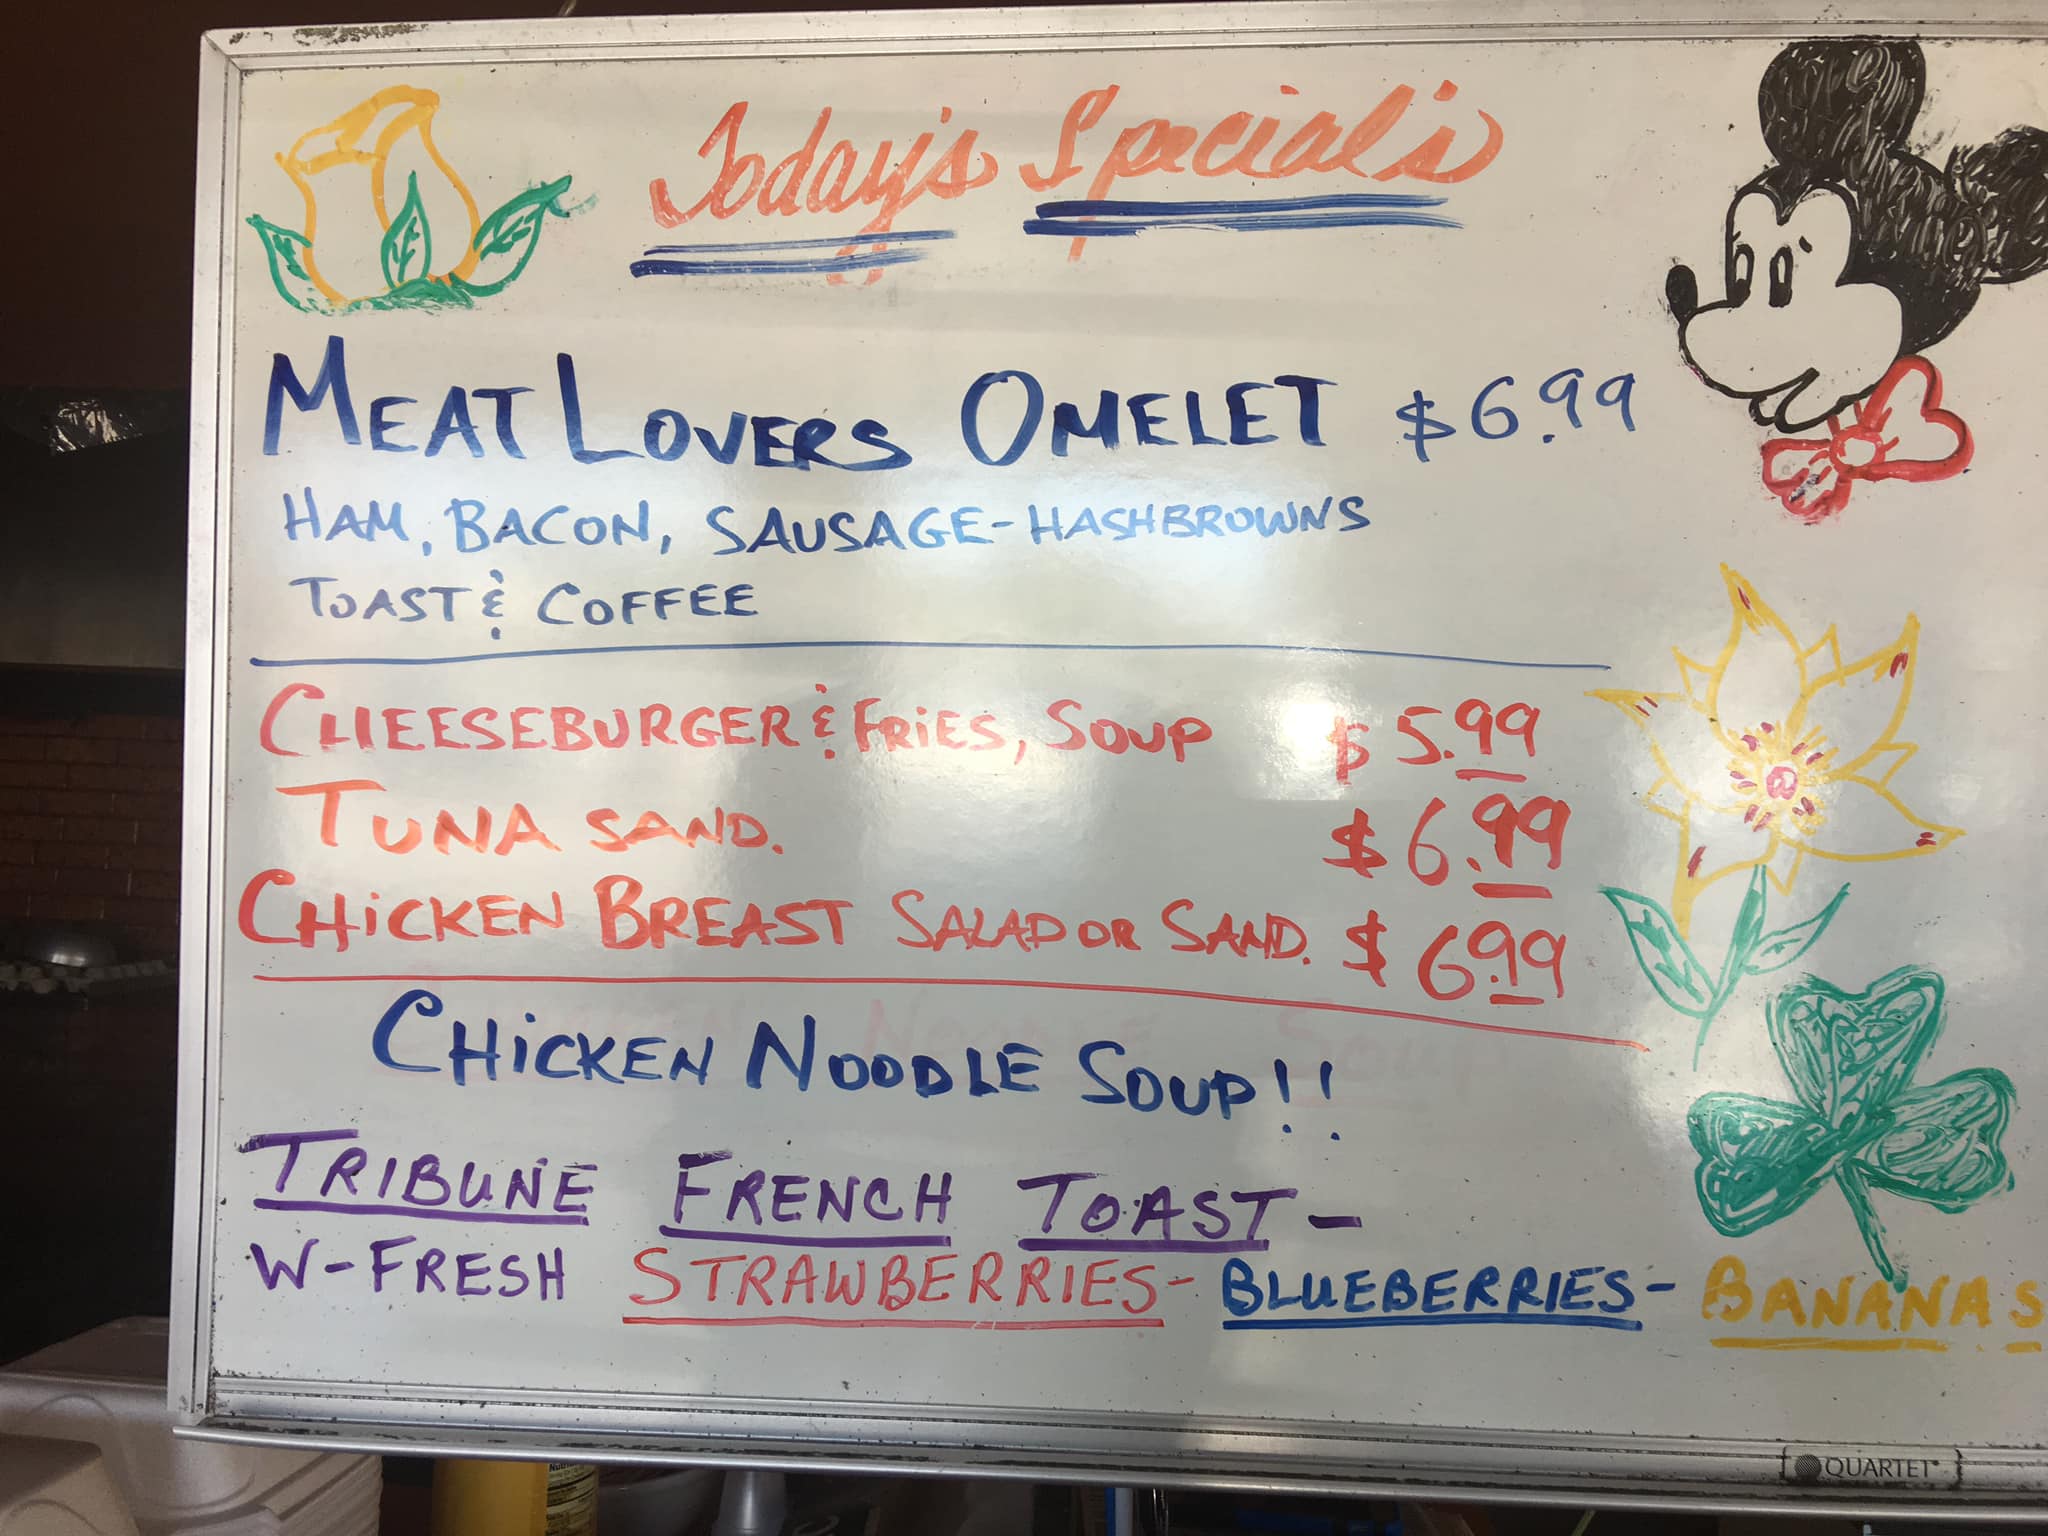 Today's Special's
MEAT LOVERS OMELET $6.99
HAM, BACON, SAUSAGE-HASHBROWNS
TOAST & COFFEE
CHEESEBURGER & FRiES, SOUP $5.99
TUNA SAND. $6.99
CHiCKEN BREAST SALAD OR SAND. $6.99
CHiCKEN NOODLE SOUP!!
TRIBUNE FRENCH TOAST-
W-FRESH STRAWBERRIES-BLUEBERRIES-BANANAS
QUARTET